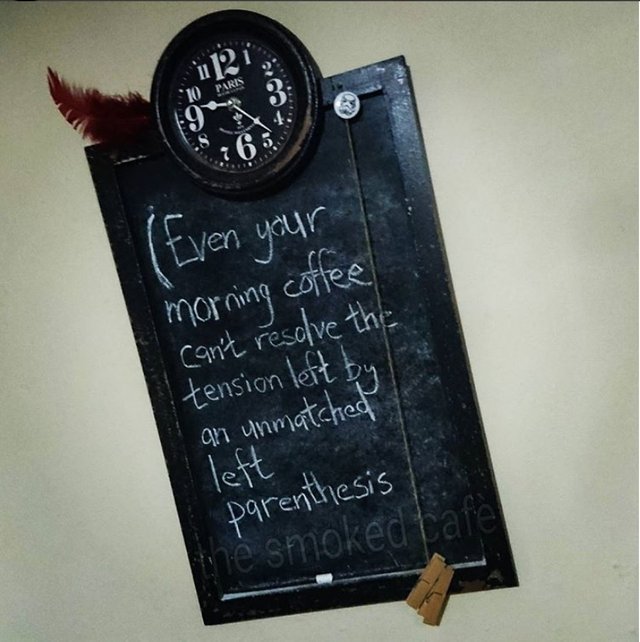 11 12 1
10 2
PARIS
9 3
8 4
7 6 5
(Even your
morning coffee
can't resolve the
tension left by
an unmatched
left
parenthesis
the smoked cafè